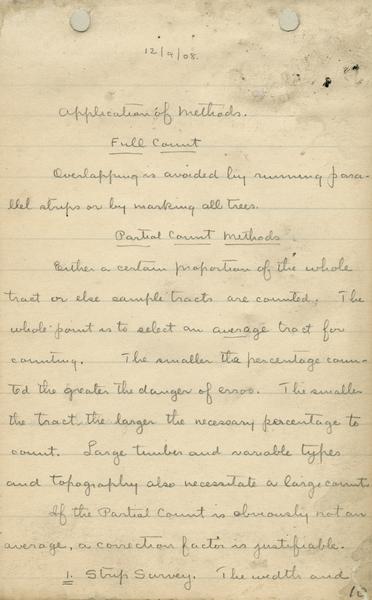 12/9/08.
Application of Methods.
Full Count
Overlapping is avoided by running para-
llel strips or by marking all trees.
Partial Count Methods
Either a certain proportion of the whole
tract or else sample tracts are counted. The
whole point is to select an average tract for
counting. The smaller the percentage coun-
ted the greater the danger of error. The smaller
the tract the larger the necessary percentage to
count. Large timber and variable types
and topography also necessitate a large count.
If the Partial Count is obviously not an
average, a correction factor is justifiable.
1. Strip Survey. The width and